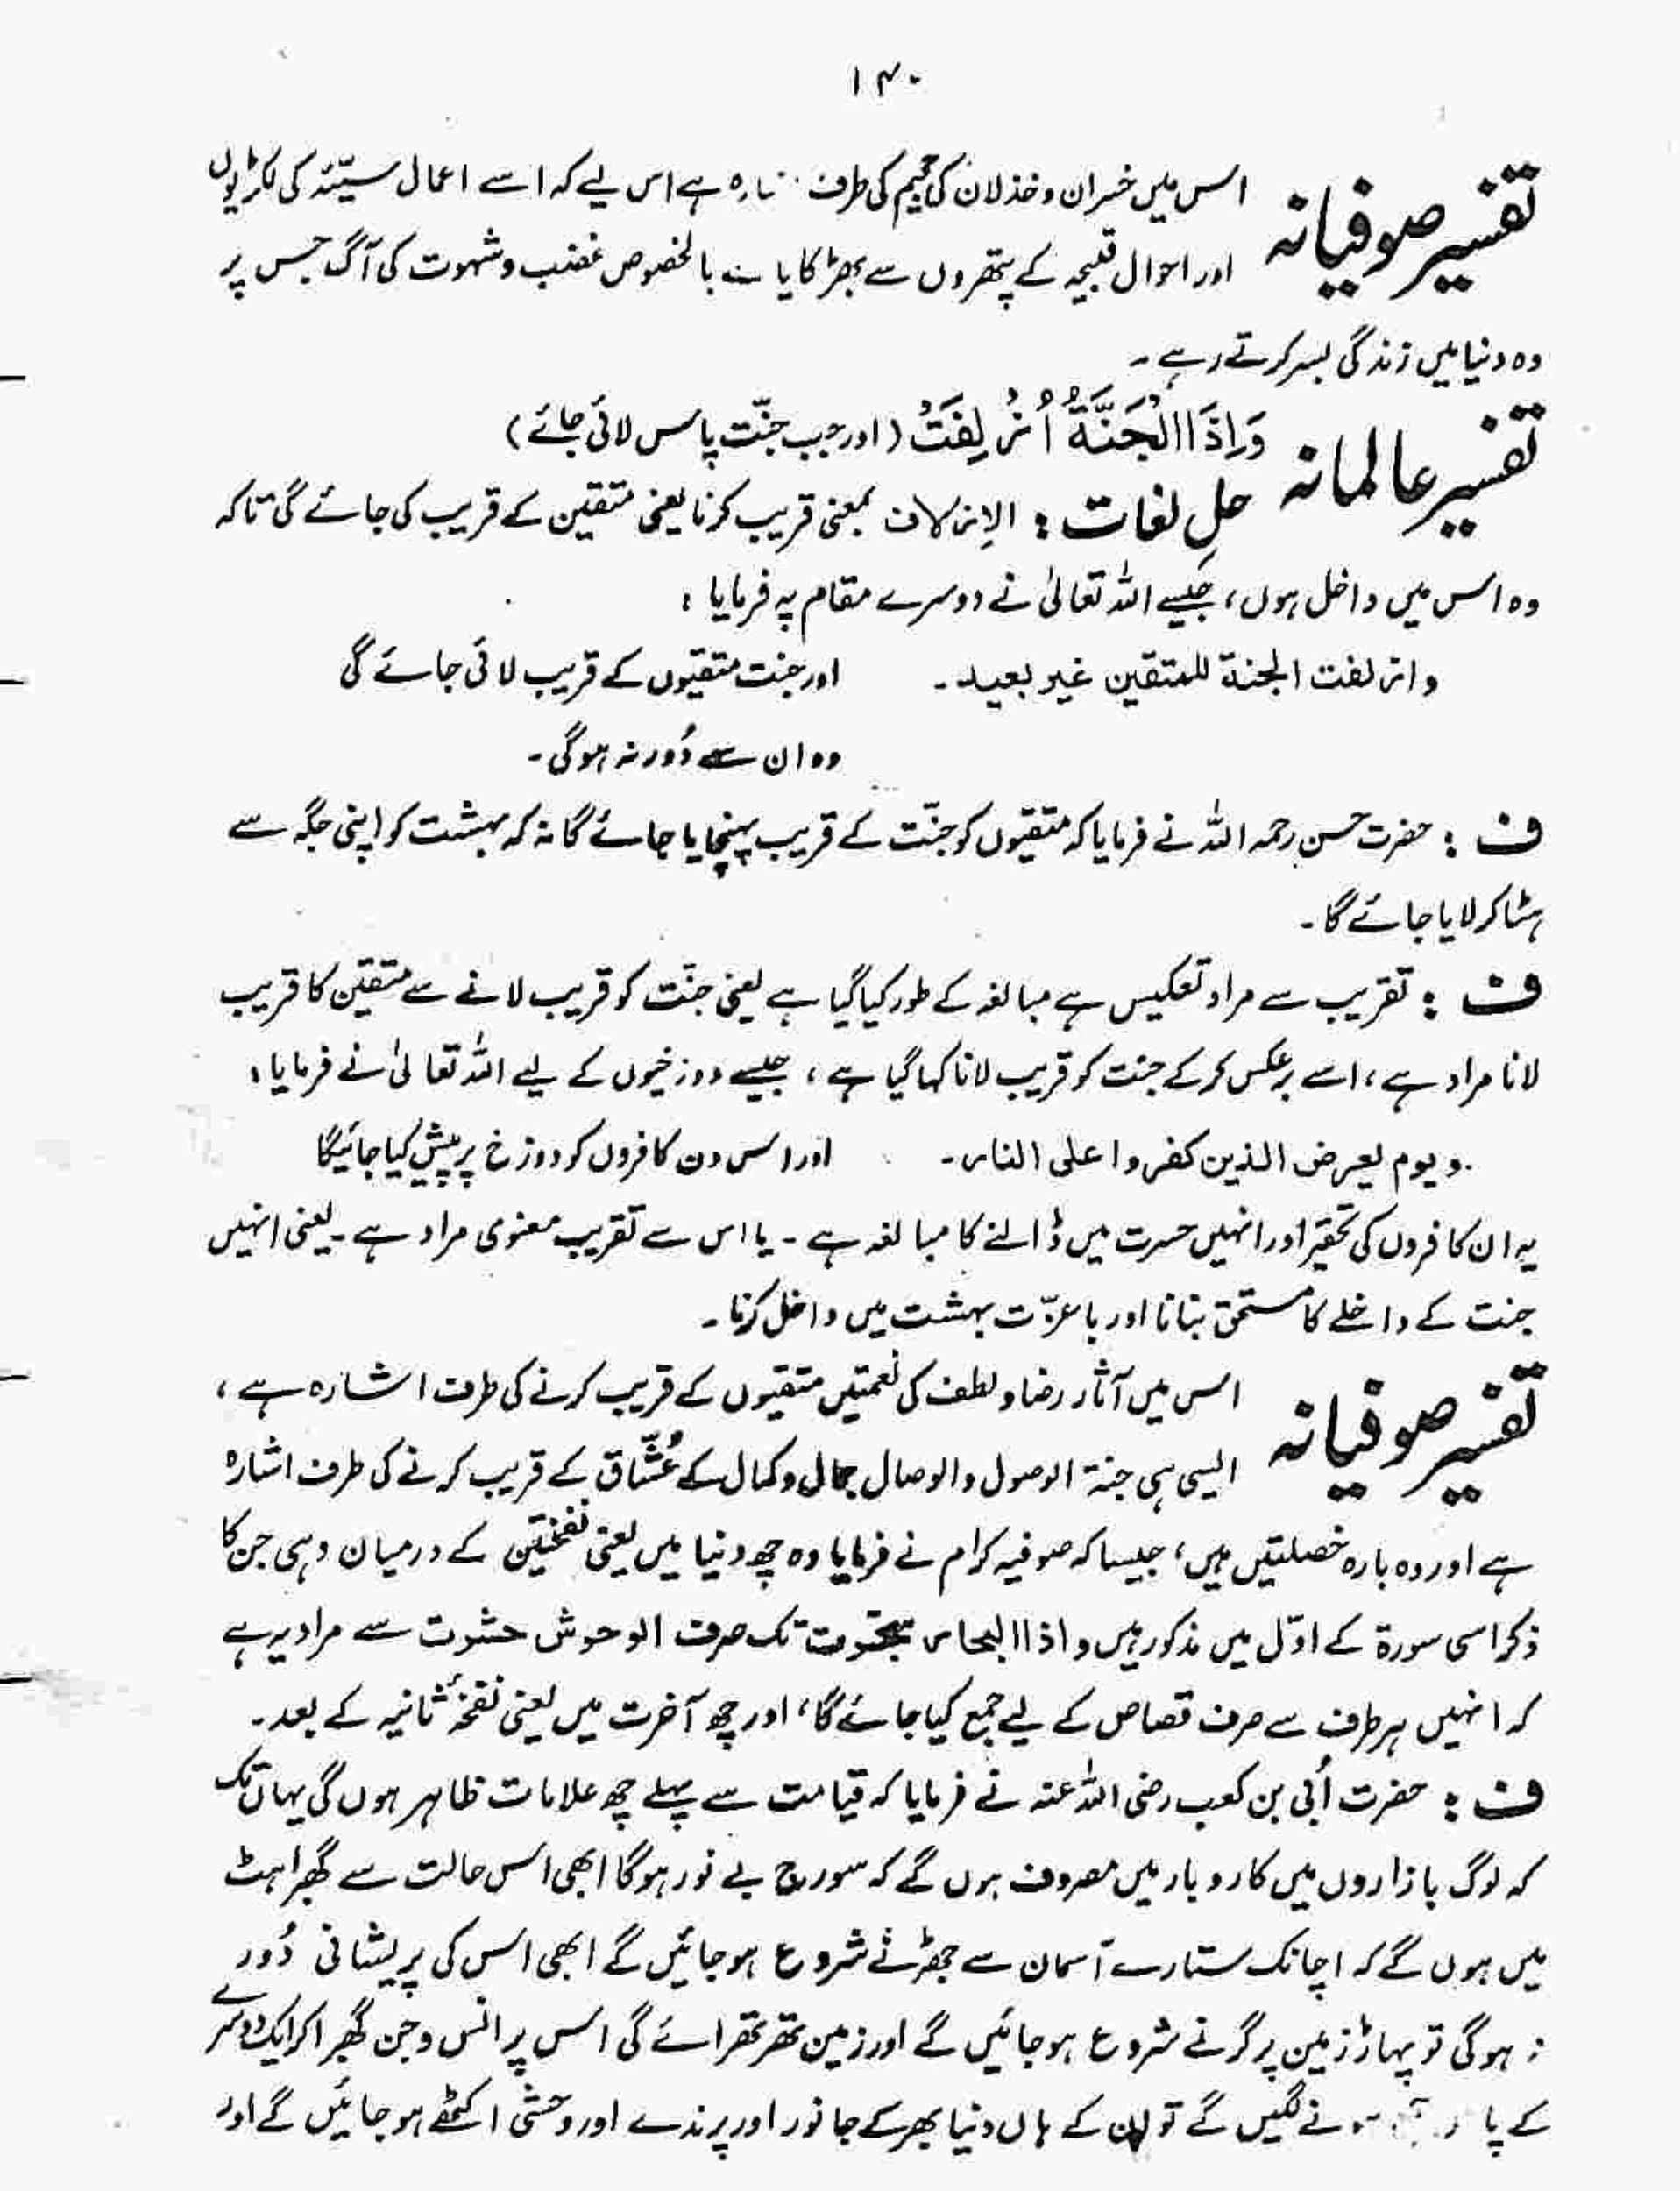 ۱۴۰
تفسیر صوفیانہ اس میں خسران و خذلان کی جحیم کی طرف ہے اس لیے کہ اسے اعمال سیّئہ کی لکڑیوں
اور احوال قبیحہ کے پتھروں سے بھڑکایا بالخصوص غضب و شہوت کی آگ جس پر
وہ دنیا میں زندگی بسر کرتے رہے ۔
تفسیر عالمانہ وَاِذَا الْجَنَّةُ اُزْلِفَتْ (اور جب جنّت پاس لائی جائے)
حلِ لغات : الازلاف بمعنی قریب کرنا یعنی متقین کے قریب کی جائے گی تاکہ
وہ اس میں داخل ہوں، جیسے اللہ تعالیٰ نے دوسرے مقام پہ فرمایا :
وازلفت الجنة للمتقین غیر بعید ۔ اور جنت متقیوں کے قریب لائی جائے گی
وہ ان سے دُور نہ ہوگی ۔
ف : حضرت حسن رحمہ اللہ نے فرمایا کہ متقیوں کو جنّت کے قریب پہنچایا جائے گا نہ کہ بہشت کو اپنی جگہ سے
ہٹا کر لایا جائے گا ۔
ف : تقریب سے مراد تعکیس ہے مبالغہ کے طور کیا گیا ہے یعنی جنّت کو قریب لانے سے متقین کا قریب
لانا مراد ہے، اسے برعکس کر کے جنت کو قریب لانا کہا گیا ہے، جیسے دوزخیوں کے لیے اللہ تعالیٰ نے فرمایا :
ویوم یعرض الذین کفروا علی النار ۔ اور اس دن کافروں کو دوزخ پر پیش کیا جائیگا
یہ ان کافروں کی تحقیر اور انہیں حسرت میں ڈالنے کا مبالغہ ہے ۔ یا اس سے تقریب معنوی مراد ہے ۔ یعنی انہیں
جنت کے داخلے کا مستحق بنانا اور باعزّت بہشت میں داخل کرنا ۔
تفسیر صوفیانہ اس میں آثار رضا و لطف کی نعمتیں متقیوں کے قریب کرنے کی طرف اشارہ ہے،
ایسی ہی جنۃ الوصول والوصال جمال و کمال کے عُشّاق کے قریب کرنے کی طرف اشارہ
ہے اور وہ بارہ خصلتیں ہیں، جیسا کہ صوفیہ کرام نے فرمایا وہ چھ دنیا میں یعنی نفختین کے درمیان وہی جن کا
ذکر اسی سورۃ کے اوّل میں مذکور ہیں واذا البحار سجّرت تک صرف الوحوش حشرت سے مراد یہ ہے
کہ انہیں ہر طرف سے صرف قصاص کے لیے جمع کیا جائے گا، اور چھ آخرت میں یعنی نفخۂ ثانیہ کے بعد ۔
ف : حضرت اُبی بن کعب رضی اللہ عنہ نے فرمایا کہ قیامت سے پہلے چھ علامات ظاہر ہوں گی یہاں تک
کہ لوگ بازاروں میں کاروبار میں مصروف ہوں گے کہ سورج بے نور ہوگا ابھی اس حالت سے گھبراہٹ
میں ہوں گے کہ اچانک ستارے آسمان سے جھڑنے شروع ہو جائیں گے ابھی اس کی پریشانی دُور
نہ ہوگی تو پہاڑ زمین پر گرنے شروع ہو جائیں گے اور زمین تھرتھرائے گی اس پر انس و جن گھبرا کر ایک دوسرے
کے نے لگیں گے تو ان کے ہاں دنیا بھر کے جانور اور پرندے اور وحشی اکٹھے ہو جائیں گے اور